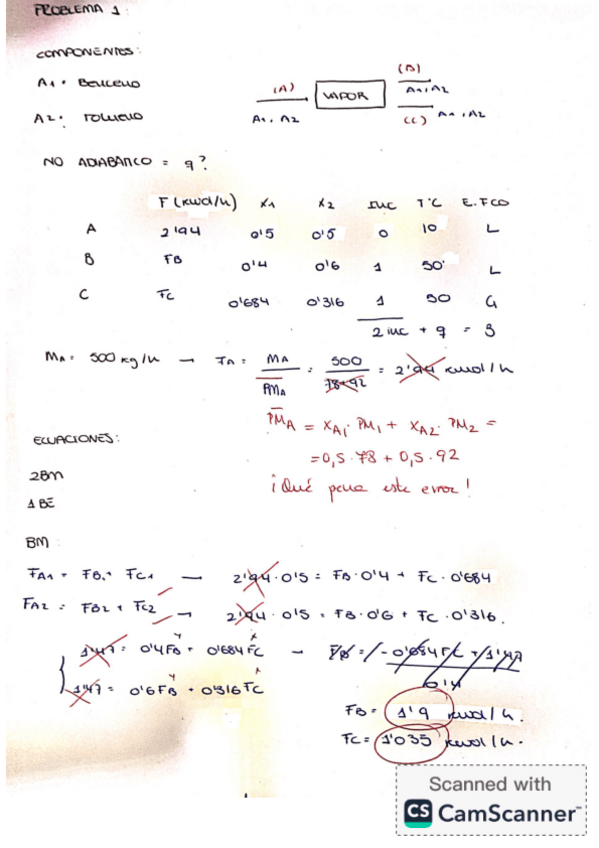 PROBLEMA 1:
COMPONENTES:
A1: BENCENO
A2: TOLUENO
(A)
A1, A2
VAPOR
(B)
A1, A2
(C) A1, A2
NO ADIABATICO = q?
F (kmol/h) X1 X2 INC TºC E.FCO
A 2'94 0'5 0'5 0 10 L
B FB 0'4 0'6 1 50 L
C FC 0'684 0'316 1 50 G
2 inc + q = 3
MA = 500 kg/h → FA = MA / PMA = 500 / 78+92 = 2'94 kmol/h
PMA = XA1 · PM1 + XA2 · PM2 =
= 0,5 · 78 + 0,5 · 92
¡Qué pena este error!
ECUACIONES:
2BM
1 BE
BM:
FA1 = FB1 + FC1 → 2'94 · 0'5 = FB · 0'4 + FC · 0'684
FA2 = FB2 + FC2 → 2'94 · 0'5 = FB · 0'6 + FC · 0'316.
1'47 = 0'4 FB + 0'684 FC → FB = - 0'684 FC + 1'47 / 0'4
1'47 = 0'6 FB + 0'316 FC
FB = 1'9 kmol/h.
FC = 1'035 kmol/h.
Scanned with
CS CamScanner